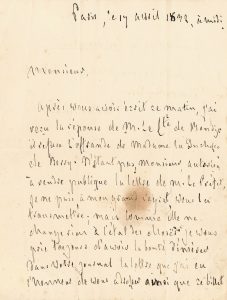 Paris, le 17 avril 1832, à midi
Monsieur,
Après vous avoir écrit ce matin, j'ai
reçu la réponse de M. le Cte de
il refuse l'offrande de Madame la Duchesse
de Berry. N'étant pas, Monsieur autorisé
à rendre publique la lettre de M. le Préfet,
je ne puis à mon grand regret vous la
transmettre; mais comme elle ne
change rien à l'état des choses, je vous
prie toujours d'avoir la bonté d'insérer
dans votre journal la lettre que j'ai eu
l'honneur de vous adresser ainsi que ce billet